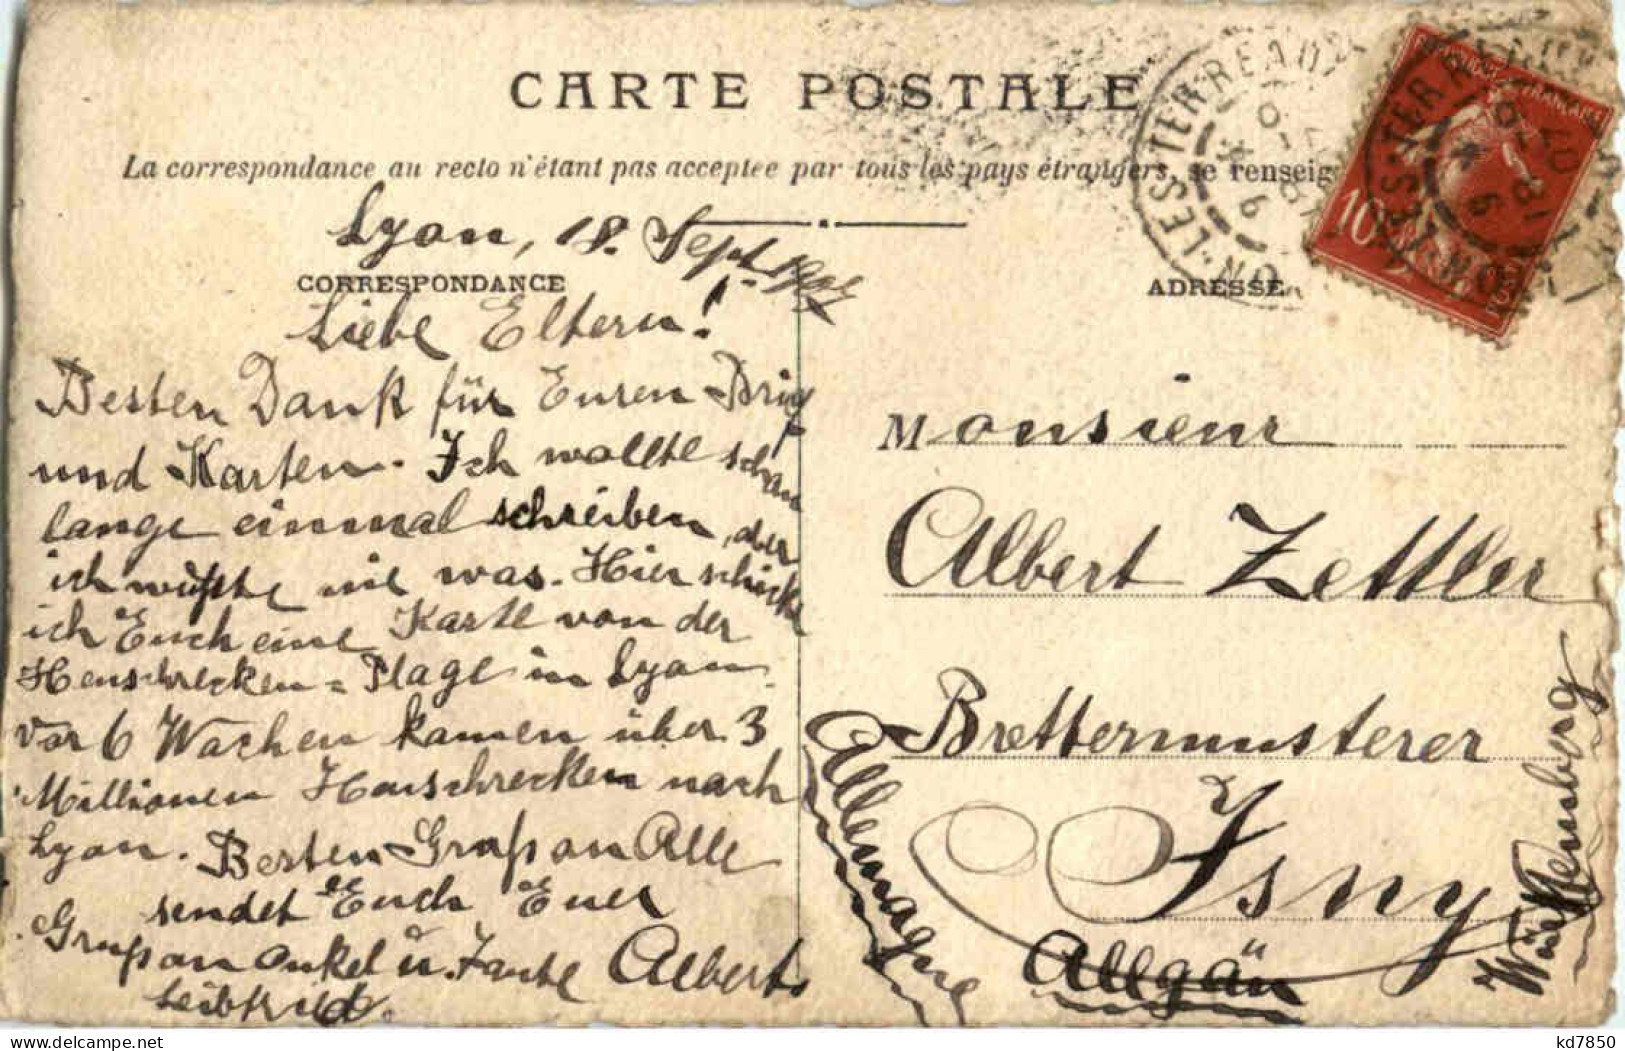 CARTE POSTALE
La correspondance au recto n'étant pas acceptée par tous les pays étrangers, se renseig
Lyon, 18. Sept. 1907
CORRESPONDANCE
Liebe Eltern!
Besten Dank für Euren Brif
und Karten. Ich wollte schon
lange einmal schreiben, aber
ich wußte nie was. Hier schicke
ich Euch eine Karte von der
Heuschrecken=Plage in Lyon.
Vor 6 Wochen kamen über 3
Millionen Heuschrecken nach
Lyon. Besten Gruß an Alle
sendet Euch Euer
Albert
Gruß an Onkel u. Tante
Leibfrid.
ADRESSE
Monsieur
Albert Zettler
Brettermusterer
Isny
Allgäu
Württemberg
Allemagne
LES TERREAUX
10
kd7850